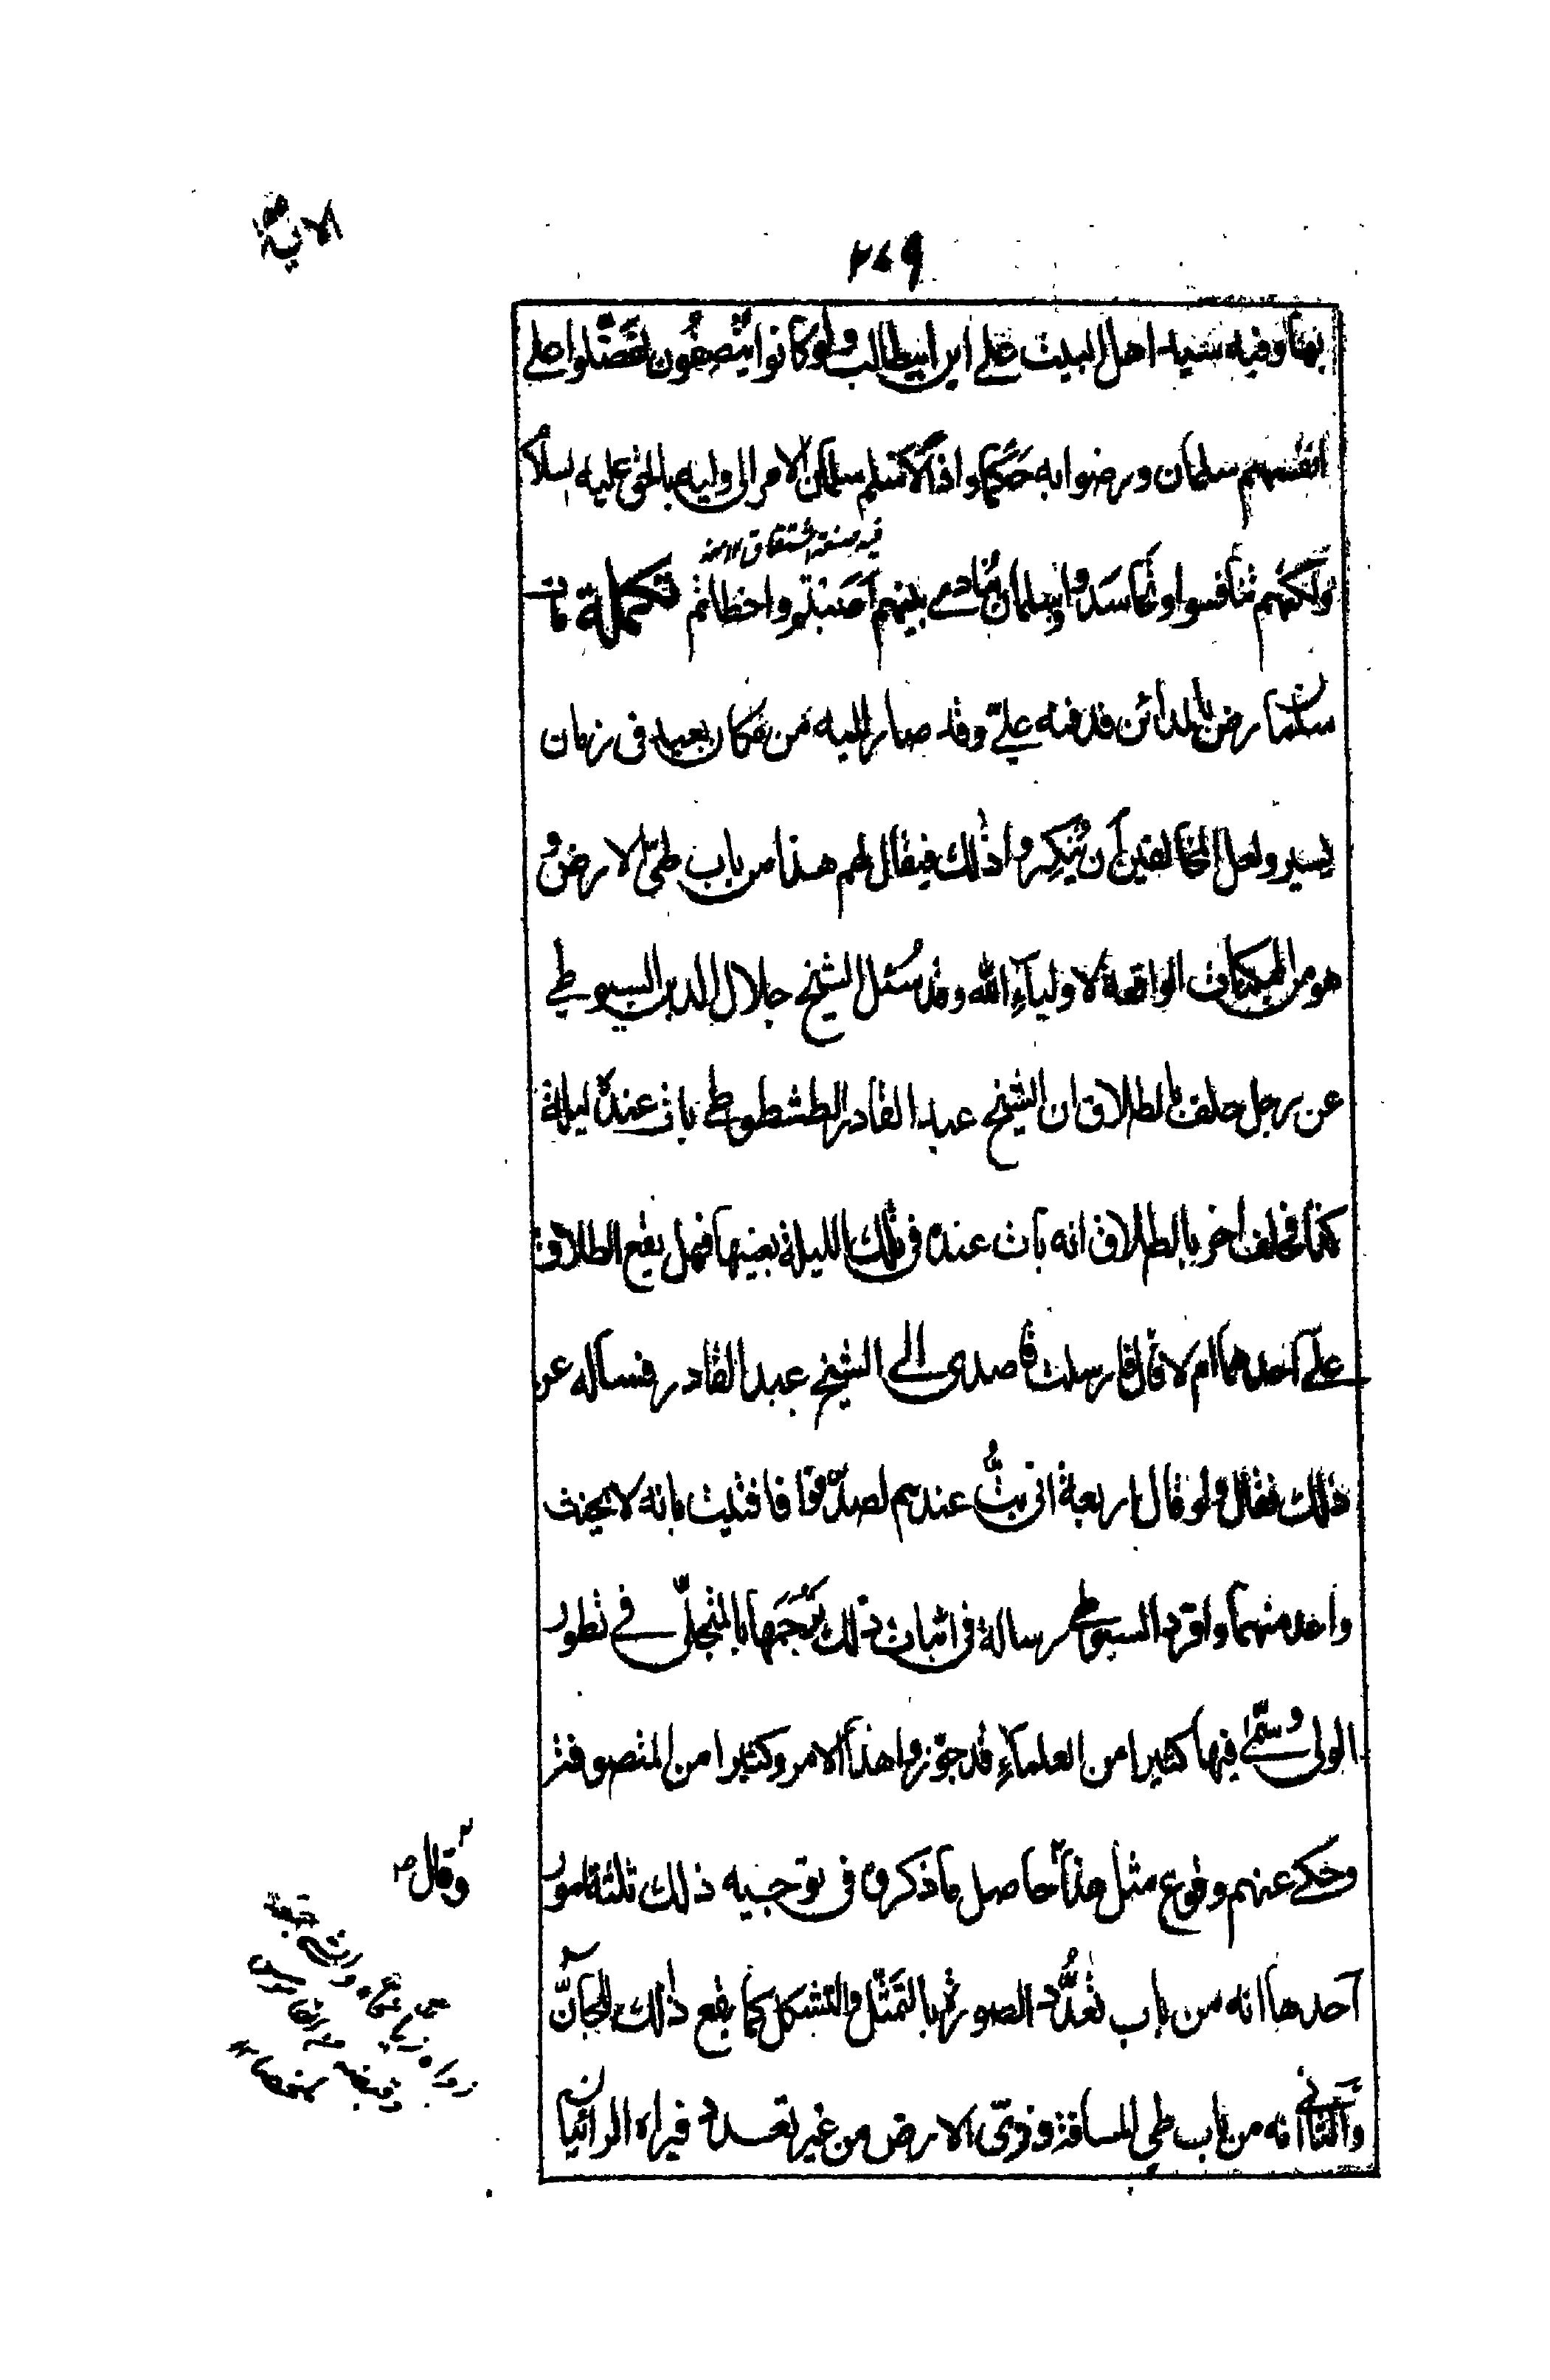 ٢٧٩
بها وفيه سيد اهل البيت علي ابن ابيطالب ولو كانوا يُنْصِفُون لفَضَّلوا على
انفسهم سلمان ورضوا به حَكَما واذًا لاسلم سلمان الامر الى وليه بالحق عليه السلام
ولكنهم تنافسوا وتحاسَدوا وسلمان يُنادي بينهم اَصَبْتُم واخطاتم تكملة مات
فيه صنعة اشتقاق ١٢ منه
سلمان رض بالمدائن فدفنه عليّ وقد صار اليه من مكان بعيد في زمان
يسير ولعل المخالفين أن يُنكِروا ذلك فيقال لهم هذا من باب طيّ الارض و
هو من الممكنات الواقعة لاولياءِ الله وقد سُئل الشيخ جلال الدين السيوطي
عن رجل حلف بالطلاق ان الشيخ عبد القادر الطشطوطي بات عنده ليلة
كذا فحلف اخر بالطلاق انه بات عنده في تلك الليلة بعينها فهل يقع الطلاق
على احدهما ام لا قال فارسلت قاصدى الى الشيخ عبد القادر فساله عن
ذلك فقال ولو قال اربعة انى بتُّ عندهم لصدّقوا فافتيت بانه لا يحنث
واحد منهما وافرد السيوطي رسالة في اثبات ذلك تَرْجَمَها بالمتجلّى في تطور
الولى وسمّى فيها كثيرا من العلماءِ قد جوّزوا هذا الامر وكثيرا من المتصوفة
وحكى عنهم وقوع مثل هذا حاصل ما ذكره في توجيه ذلك ثلثة امور
احدها انه من باب تعدُّد الصورة بالتمثّل والتشكل كما يقع ذلك للجانّ
والثاني انه من باب طي المسافة وزوى الارض من غير تعدد فيراه الرائيان
وقال